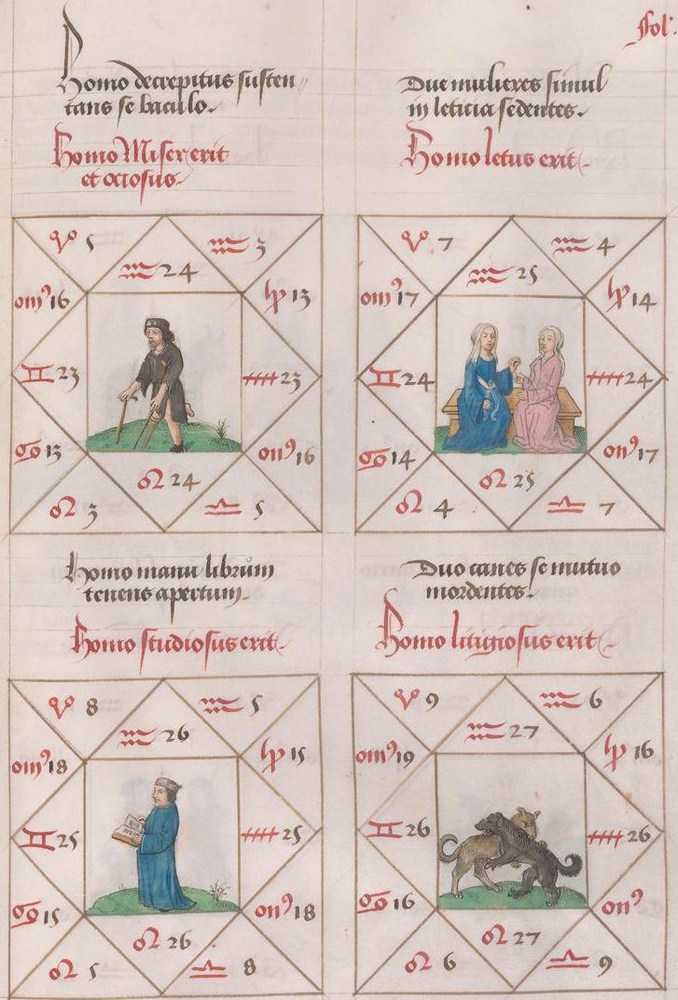 Fol:
Homo decrepitus susten
tans se bacillo.
Homo Miser erit
et ociosus
♈ 5
♒ 3
♒ 24
16
13
♊ 23
23
♋ 13
16
♌ 24
♌ 3
♎ 5
Due mulieres simul
in leticia sedentes.
Homo letus erit
♈ 7
♒ 4
♒ 25
17
14
♊ 24
24
♋ 14
17
♌ 25
♌ 4
♎ 7
Homo manu librum
tenens apertum.
Homo studiosus erit
♈ 8
♒ 5
♒ 26
18
15
♊ 25
25
♋ 15
18
♌ 26
♌ 5
♎ 8
Duo canes se mutuo
mordentes.
Homo litigiosus erit
♈ 9
♒ 6
♒ 27
19
16
♊ 26
26
♋ 16
♌ 27
♌ 6
♎ 9